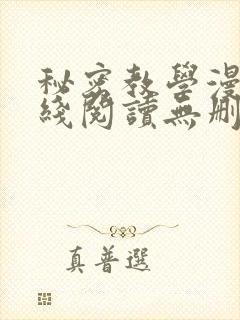 秘密教學漫
綫閱讀無刪
真普選